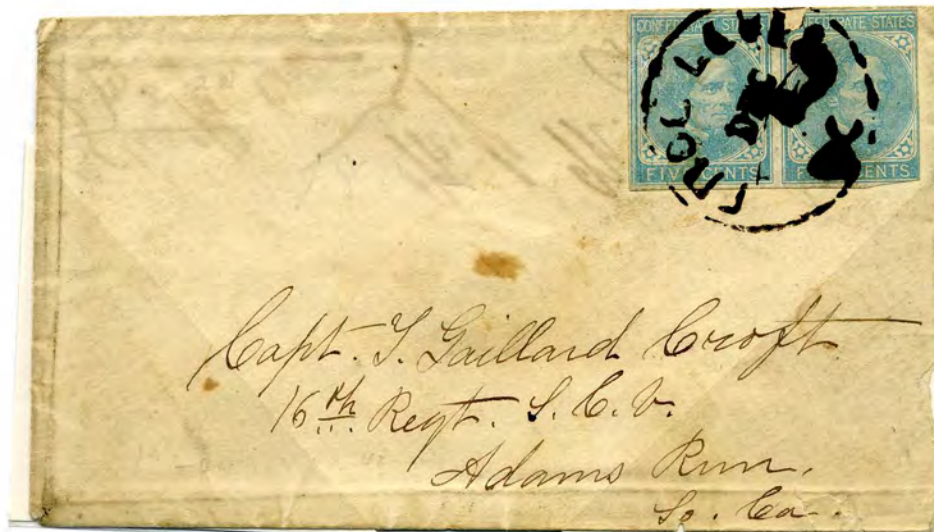 CONFEDERATE STATES CONFEDERATE STATES
FIVE CENTS FIVE CENTS
DEC
Capt. T. Gaillard Croft
16th Regt. S. C. V.
Adams Run,
So. Ca.